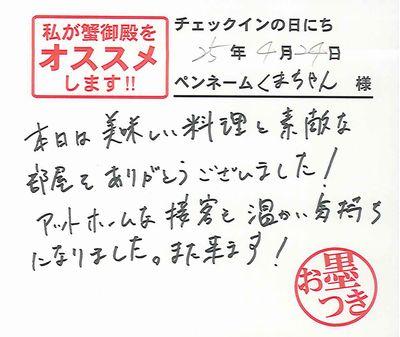 私が蟹御殿を
オススメ
します!!
チェックインの日にち
25年4月24日
ペンネームくまちゃん 様
本日は美味しい料理と素敵な
部屋をありがとうございました!
アットホームな接客も温かい気持ち
になりました。また来ます!
お墨つき